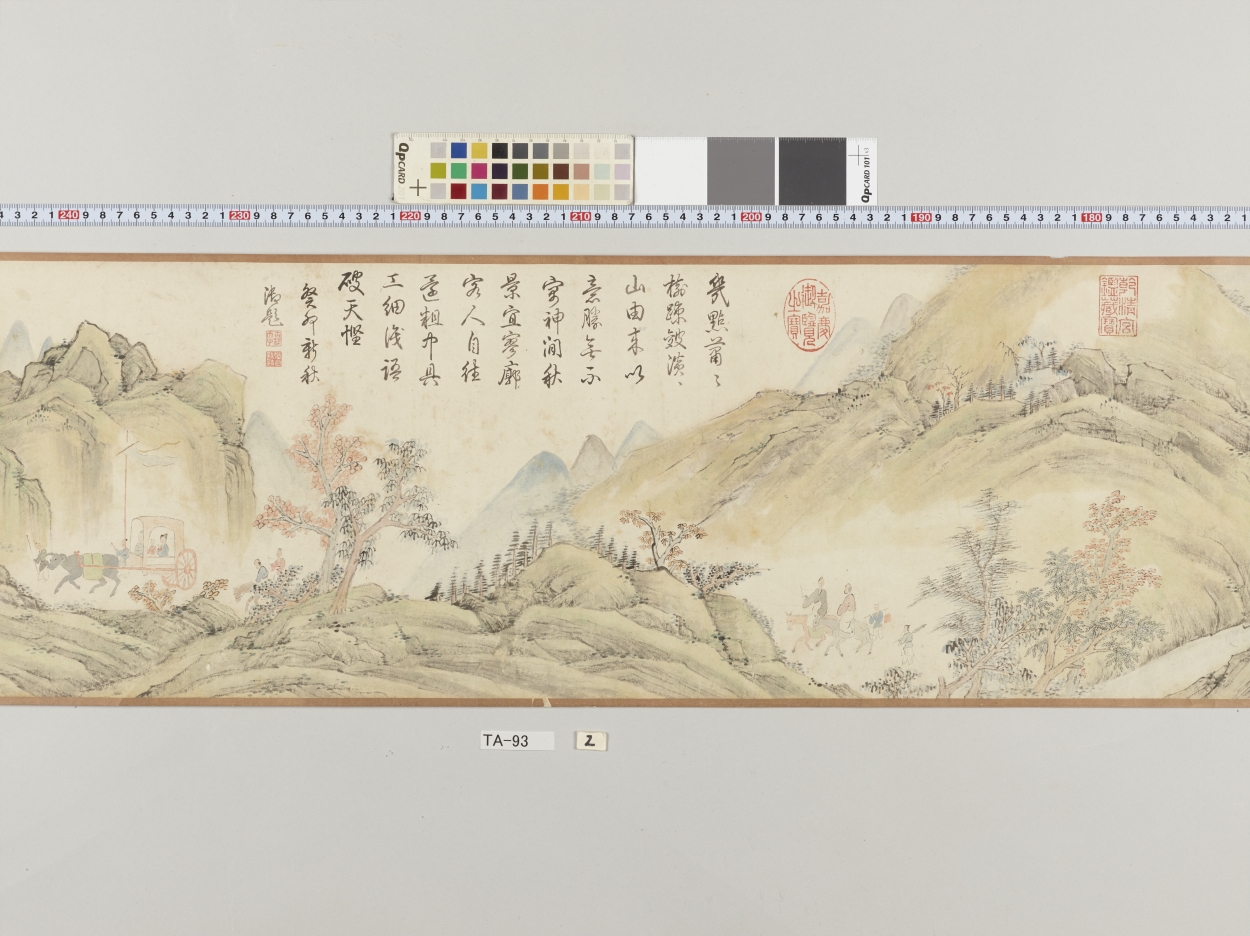 乾清宮
鑑藏寶
嘉慶
御覽
之寶
幾點蕭〻
樹疎皴
山由來以
意勝無不
寄神間秋
景宜寥廓
客人自往
還粗中具
工細淺語
破天慳
癸卯新秋
御題
QPCARD
QPCARD 101
240 9 8 7 6 5 4 3 2 1 230 9 8 7 6 5 4 3 2 1 220 9 8 7 6 5 4 3 2 1 210 9 8 7 6 5 4 3 2 1 200 9 8 7 6 5 4 3 2 1 190 9 8 7 6 5 4 3 2 1 180 9 8 7 6 5 4 3 2 1
TA-93
2